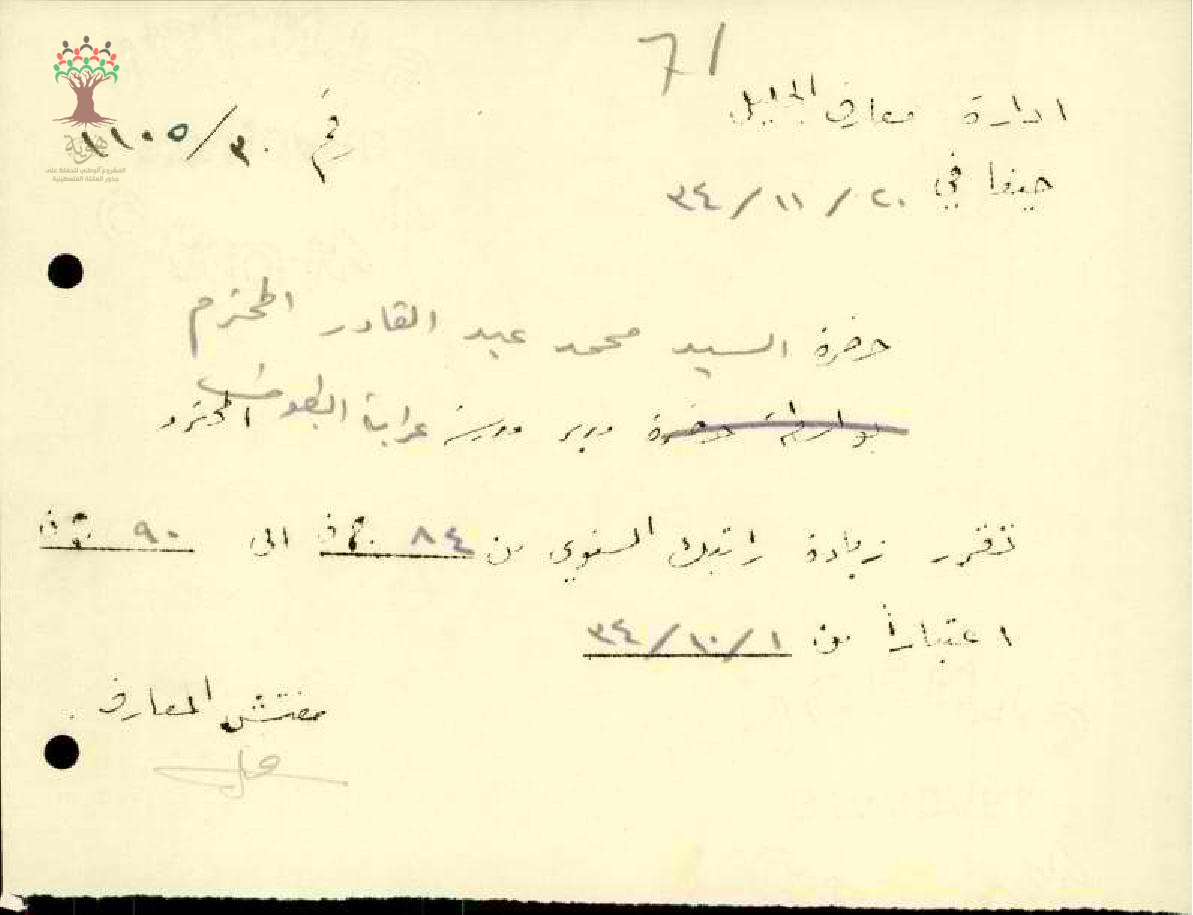 71
ادارة معارف الجليل
رقم ٣٠/١١٠٥
حيفا في ٢٠/١١/٣٤
هوية
المشروع الوطني للحفاظ على
جذور العائلة الفلسطينية
حضرة السيد محمد عبد القادر المحترم
بواسطة حضرة مدير مدرسة عرابة البطوف المحترم
تقرر زيادة راتبك السنوي من ٨٤ ج ف الى ٩٠
اعتباراً من ٣٤/١٠/١
مفتش المعارف